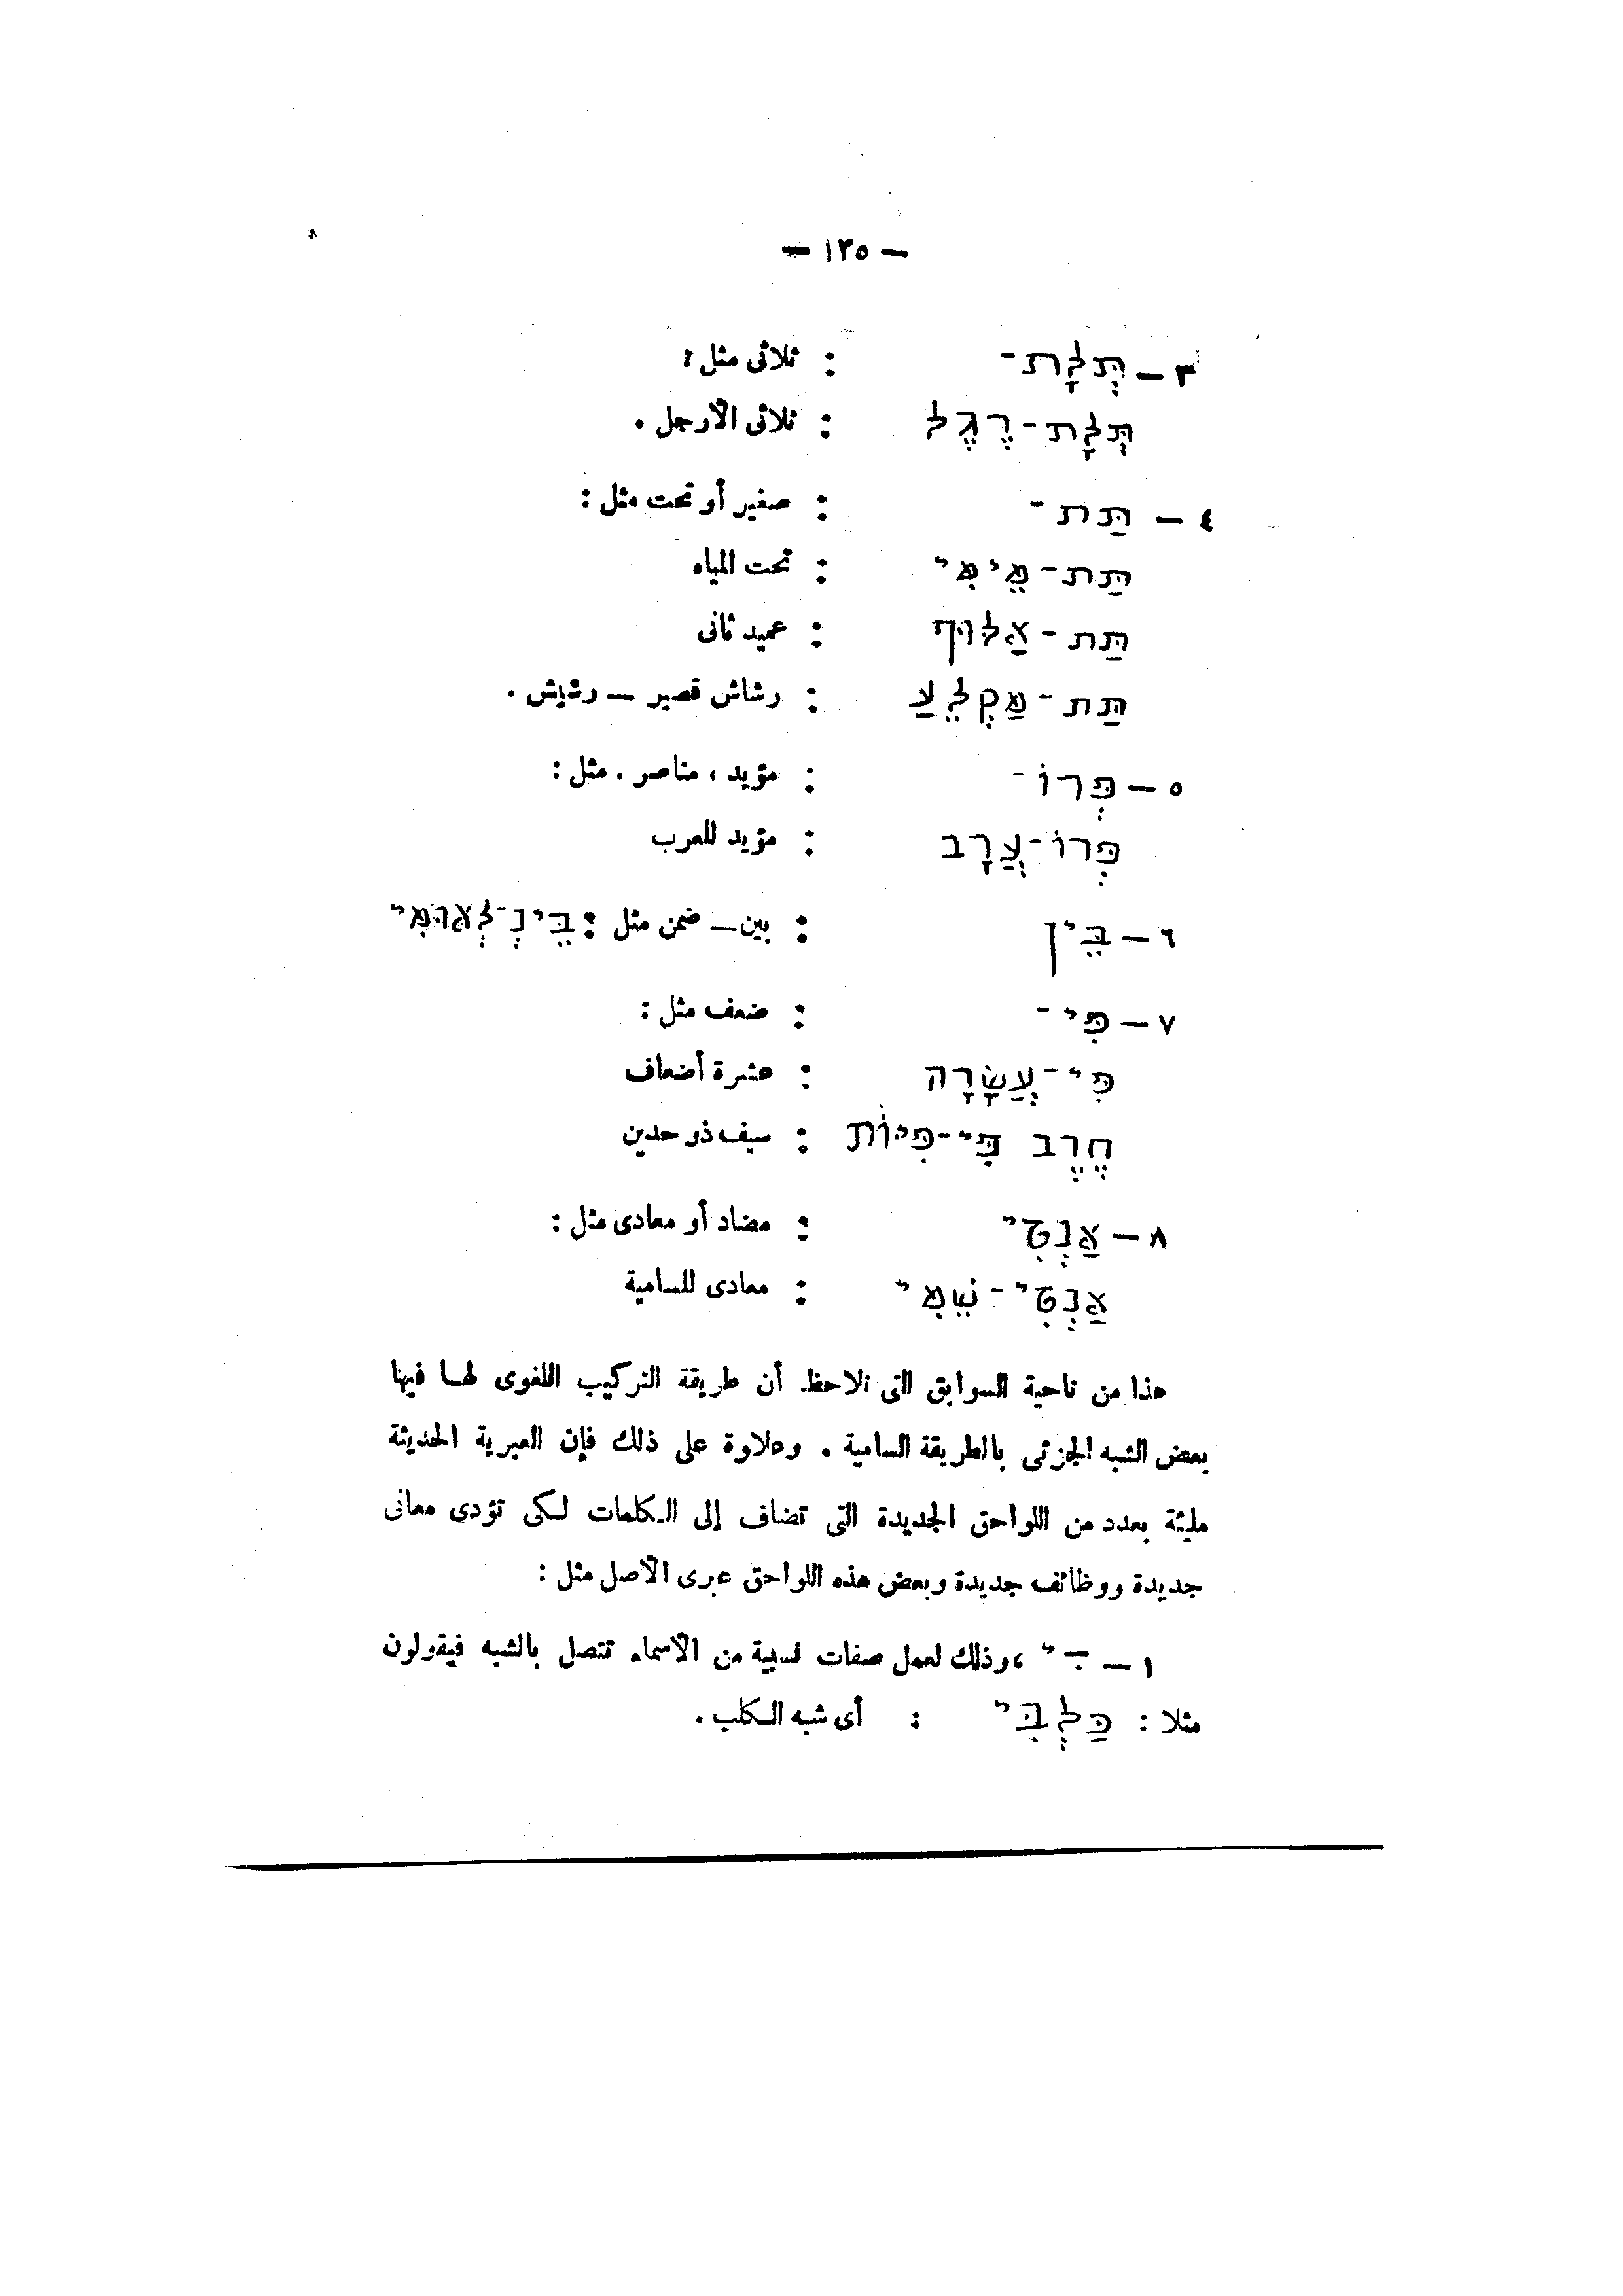 — ١٣٥ —
٣ — תְּלָת- : ثلاثى مثل :
תְּלָת-רֶגֶל : ثلاثى الأرجل .
٤ — תַּת- : صغير أو تحت مثل :
תַּת-מֵימִי : تحت المياه
תַּת-אַלוּף : عميد ثانى
תַּת-מַקְלֵעַ : رشاش قصير — رشيش .
٥ — פְּרוֹ- : مؤيد ، مناصر . مثل :
פְּרוֹ-עֲרָב : مؤيد للعرب
٦ — בֵּין : بين — ضمن مثل : בֵּינְ-לְאוּמִי
٧ — פִּי- : ضعف مثل :
פִּי-עֲשָׂרָה : عشرة أضعاف
חֶרֶב פִּי-פִּיּוֹת : سيف ذو حدين
٨ — אַנְטִי : مضاد أو معادى مثل :
אַנְטִי-שֵׁמִי : معادى للسامية
هذا من ناحية السوابق التى نلاحظ أن طريقة التركيب اللغوى لها فيها
بعض الشبه الجزئى بالطريقة السامية . وعلاوة على ذلك فإن العبرية الحديثة
مليئة بعدد من اللواحق الجديدة التى تضاف إلى الكلمات لكى تؤدى معانى
جديدة ووظائف جديدة وبعض هذه اللواحق عبرى الأصل مثل :
١ — ִי ، وذلك لعمل صفات نسبية من الأسماء تتصل بالشبه فيقولون
مثلا : כַּלְבִּי : أى شبه الكلب .